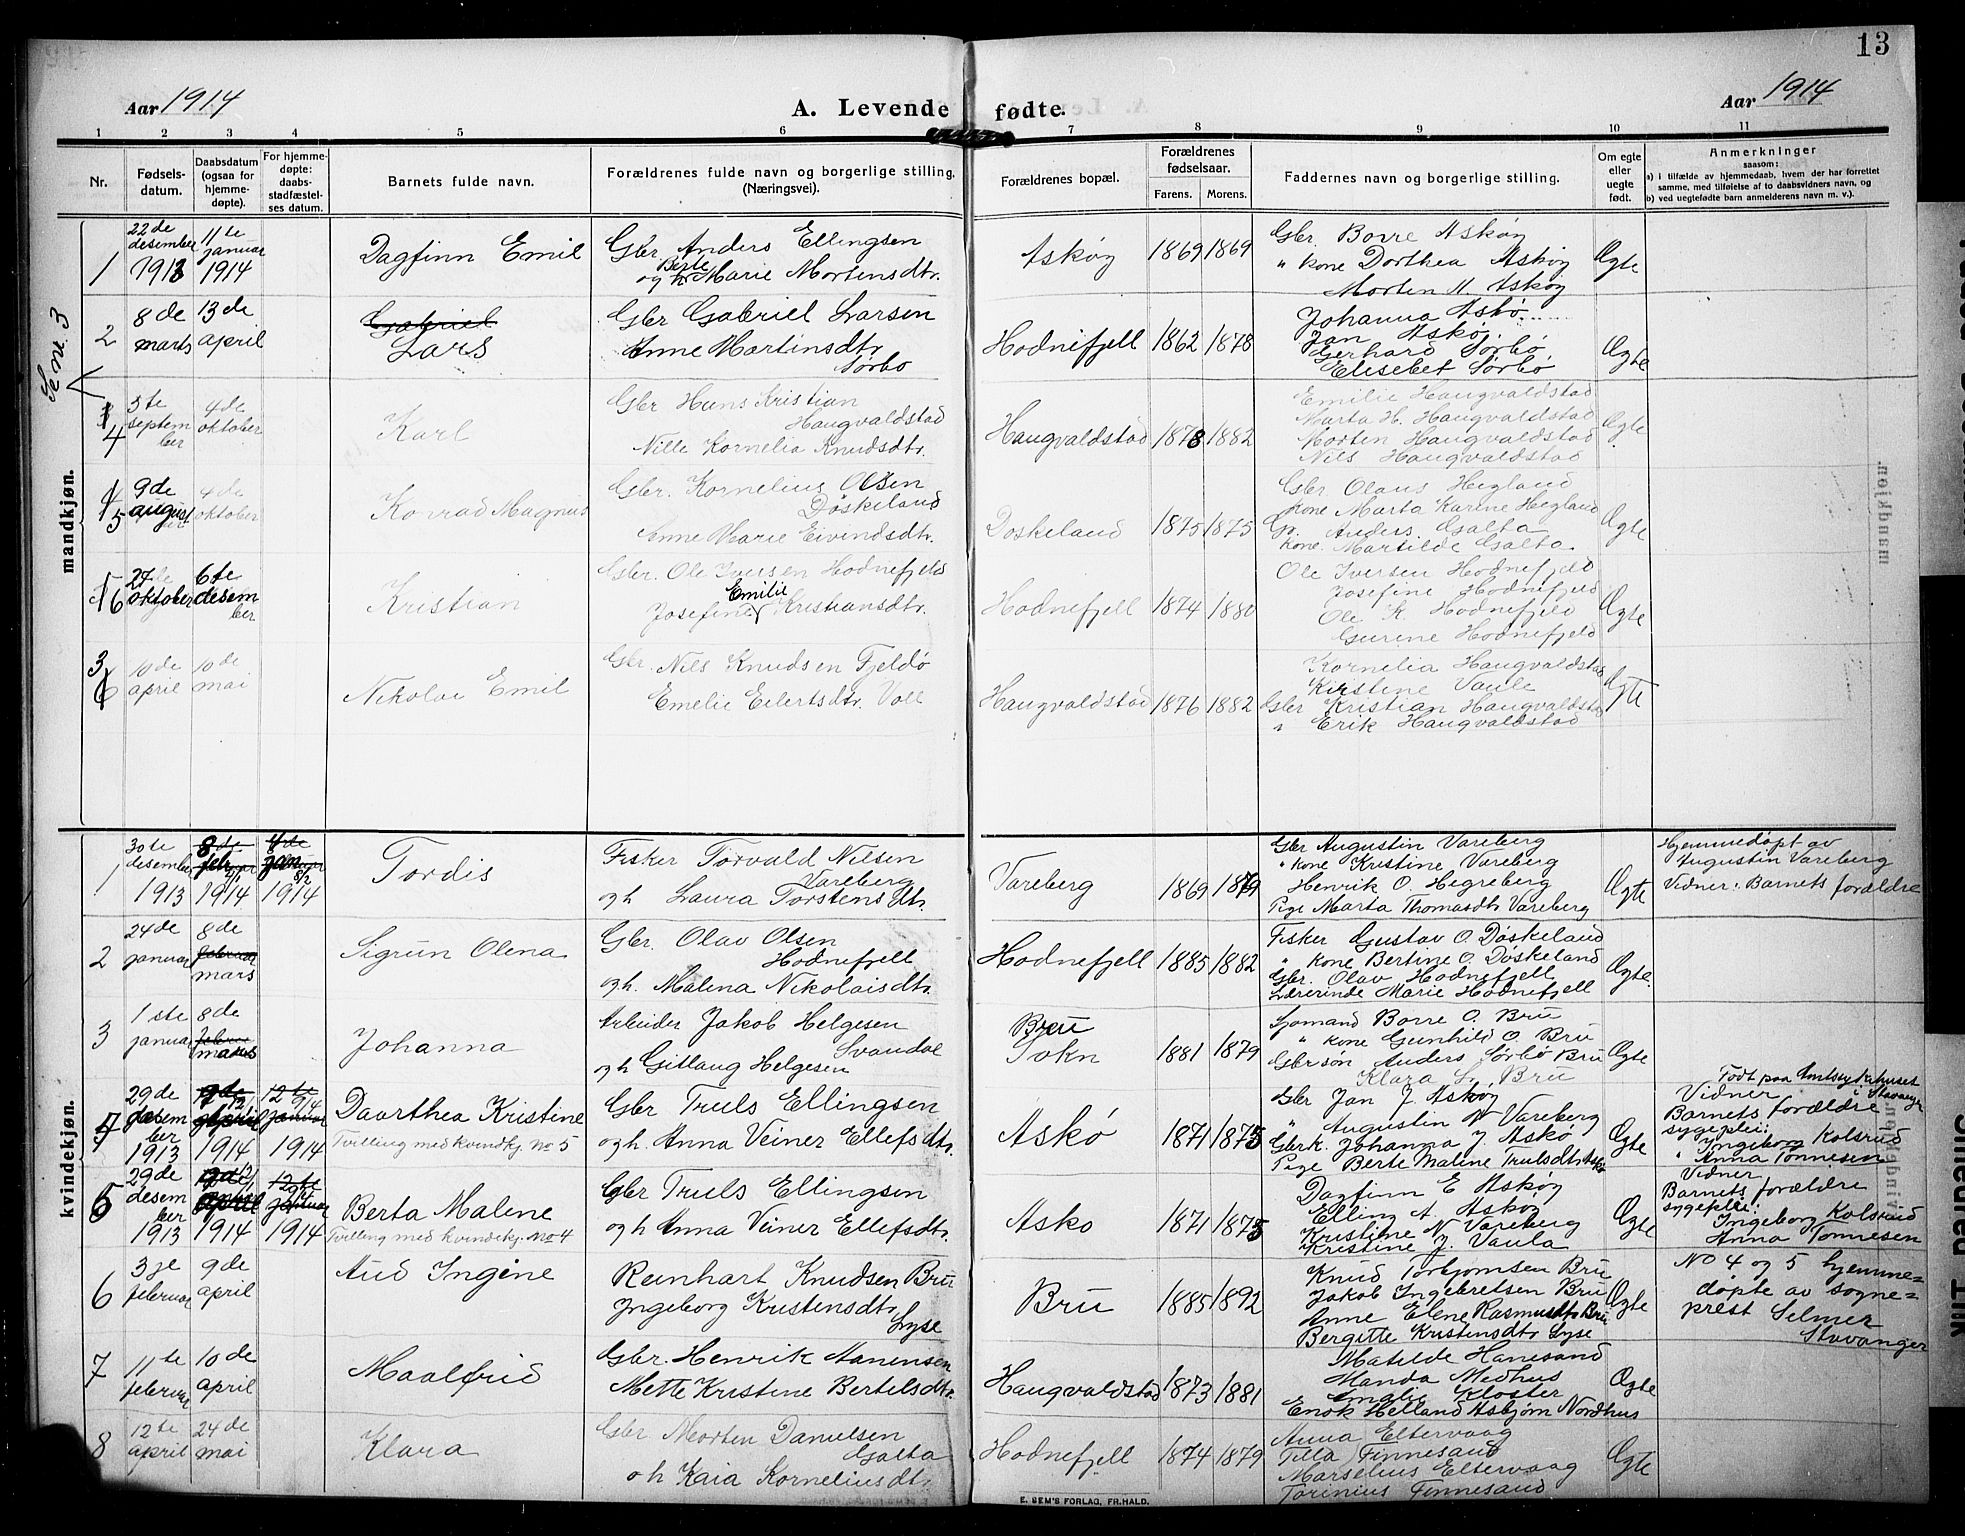 13
Aar 1914
A. Levende fødte.
Aar 1914
1 2 3 4 5 6 7 8 9 10 11
Nr.
Fødsels-
datum.
Daabsdatum
(ogsaa for
hjemme-
døpte).
For hjemme-
døpte:
daabs-
stadfæstel-
ses datum.
Barnets fulde navn.
Forældrenes fulde navn og borgerlige stilling.
(Næringsvei).
Forældrenes bopæl.
Forældrenes
fødselsaar.
Farens. Morens.
Faddernes navn og borgerlige stilling.
Om egte
eller
uegte
født.
Anmerkninger
saasom:
a) i tilfælde av hjemmedaab, hvem der har forrettet
samme, med tilføielse af to daabsvidners navn, og
b) ved uegtefødte barn anmelderens navn m. v.).
mandkjøn.
Se nr. 3
1
22de
desember
1913
11te
januar
1914
Dagfinn Emil
Gbr. Anders Ellingsen
Berte
og h Marie Mortensdtr.
Askøy
1869 1869
Gbr. Borre Askøy
" kone Dorthea Askøy
Morten M. Askøy
Ægte
2
8de
marts
13de
april
Gabriel
Lars
Gbr Gabriel Larsen
Anne Martinsdtr
Sørbø
Hodnefjell
1862 1878
Johanna Askø
Jan Askøj.
Gerhard Sørbø
Elisebet Sørbø
Ægte
4
3te
septem
ber
4de
oktober
Karl
Gbr Hans Kristian
Haugvaldstad
Nille Kornelia Knudsdtr.
Haugvaldstad
1878 1882
Emilie Haugvaldstad
Marta H. Haugvaldstad
Morten Haugvaldstad
Nils Haugvaldstad
Ægte
5
9de
august
4de
oktober
Konrad Magnus
Gbr. Kornelius Olsen
Døskeland
Anne Marie Eivindsdtr.
Doskeland
1875 1875
Gbr Olaus Hegland
kone Marta Karine Hegland
Gr. Anders Galta
kone Martilde Galta
Ægte
6
27de
oktober
6te
desem
ber
Kristian
Gbr. Ole Iversen Hodnefjeld
Emilie
Josefine Kristiansdtr.
Hodnefjell
1874 1880
Ole Iversen Hodnefjeld
Josefine Hodnefjeld
Ole K. Hodnefjeld
Gurine Hodnefjeld
Ægte
3
10de
april
10de
mai
Nikolai Emil
Gbr. Nils Knudsen Fjeldø
Emelie Eilertsdtr. Voll
Haugvaldstad
1876 1882
Kornelia Haugvaldstad
Kirstine Vaule
Gbr Kristian Haugvaldstad
" Erik Haugvaldstad
Ægte
kvindekjøn.
1
30te
desember
1913
8de
febr
1914
januar
8/2
1914
Tordis
Fisker Torvald Nilsen
Vareberg
og h Laura Torstensdtr.
Vareberg
1869 1879
Gbr Augustin Vareberg
" kone Kristine Vareberg
Henrik O. Hegreberg
Pige Marta Thomasdtr Vareberg
Ægte
Hjemmedøpt av
Augustin Vareberg
Vidner: Barnets forældre
2
24de
januar
8de
februar
mars
Sigrun Olena
Gbr. Olav Olsen
Hodnefjell
og h. Malena Nikolaisdtr.
Hodnefjell
1885 1882
Fisker Gustav O. Døskeland
" kone Bertine O. Døskeland
Gbr. Olav Hodnefjell
Lærerinde Marie Hodnefjell
Ægte.
3
1ste
januar
8de
februar
mars
Johanna
Arbeider Jakob Helgesen
Svandal
og h Gitlaug Helgesen
Bru
Sokn
1881 1879
Sjomand Borre O. Bru
" kone Gunhild O. Bru
Gbrsøn Anders Sørbø Bru
Klara L. Bru
Ægte
4
29de
desem
ber
1913
april
1914
12te
januar
1914
Daarthea Kristine
Tvilling med kvindkj. no 5
Gbr Truls Ellingsen
og h. Anna Veiner Ellefsdtr.
Askø
1871 1875
Gbr Jan J. Askøy
" Augustin N Vareberg
Gbrk. Johanna J. Askø
Pige Berte Malene Trulsdtr Askø
Ægte
Født paa Amtssykehuset
Vidner i Stavanger
Barnets forældre
sygeplei:
Ingeborg Kolsrud
" Anna Tønnesen
5
29de
desem
ber
1913
april
1914
12te
januar
1914
Berta Malene
Tvilling med kvindekj. no 4
Gbr Truls Ellingsen
og h Anna Veiner Ellefsdtr.
Asko
1871 1875
Dagfinn E Askøy
Elling A. Askøy
Kristine N Vareberg
Kristine J. Vaula
Ægte
Vidner
Barnets forældre
sygeplei:
Ingeborg Kolsrud
Anna Tønnesen
6
3je
februar
9de
april
Aud Ingine
Reinhart Knudsen Bru
Ingeborg Kristensdtr
Lyse
Bru
1885 1892
Knud Torbjornsen Bru
Jakob Ingebretsen Bru
Anne Elene Rasmusdtr Bru
Bergitte Kristensdtr Lyse
Ægte
No 4 og 5 hjemme=
døpte av sogne=
prest Selmer
Stavanger
7
11te
februar
10de
april
Maalfrid
Gbr. Henrik Aanensen
Mette Kristine Bertelsdtr.
Haugvaldstad
1873 1881
Matilde Hanesand
Handa Medhus
Amalie Kloster
Enok Helland Asbjørn Nordhus
Ægte
8
12te
april
24de
mai
Klara
Gbr Morten Danielsen
Galta
o h Kaia Korneliusdtr.
Hodnefjell
1874 1879
Anna Eltervaag
Tilla Finnesand
Marselius Eltervaag
Torinius Finnesand
Ægte
E. SEM'S FORLAG, FR.HALD.